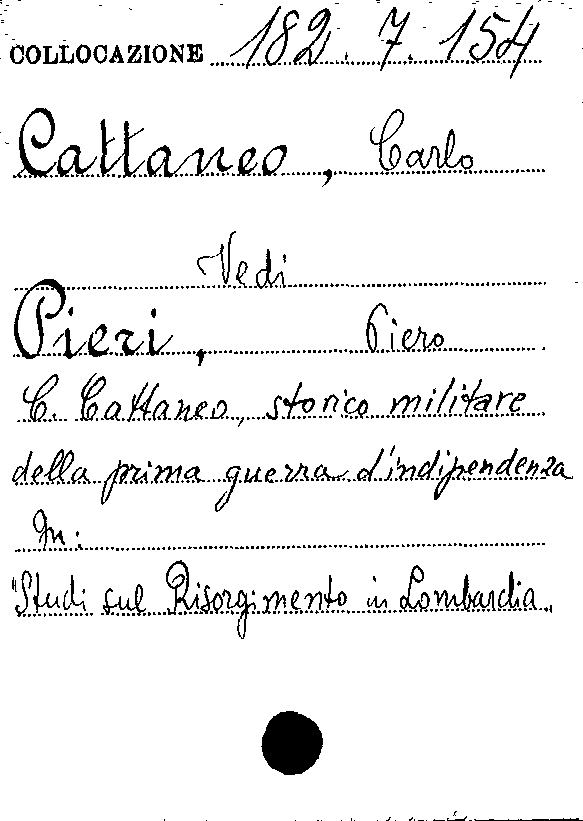 COLLOCAZIONE 182.7.154
Cattaneo, Carlo
Vedi
Pieri, Piero
C. Cattaneo, storico militare
della prima guerra d'indipendenza
In:
"Studi sul Risorgimento in Lombardia"